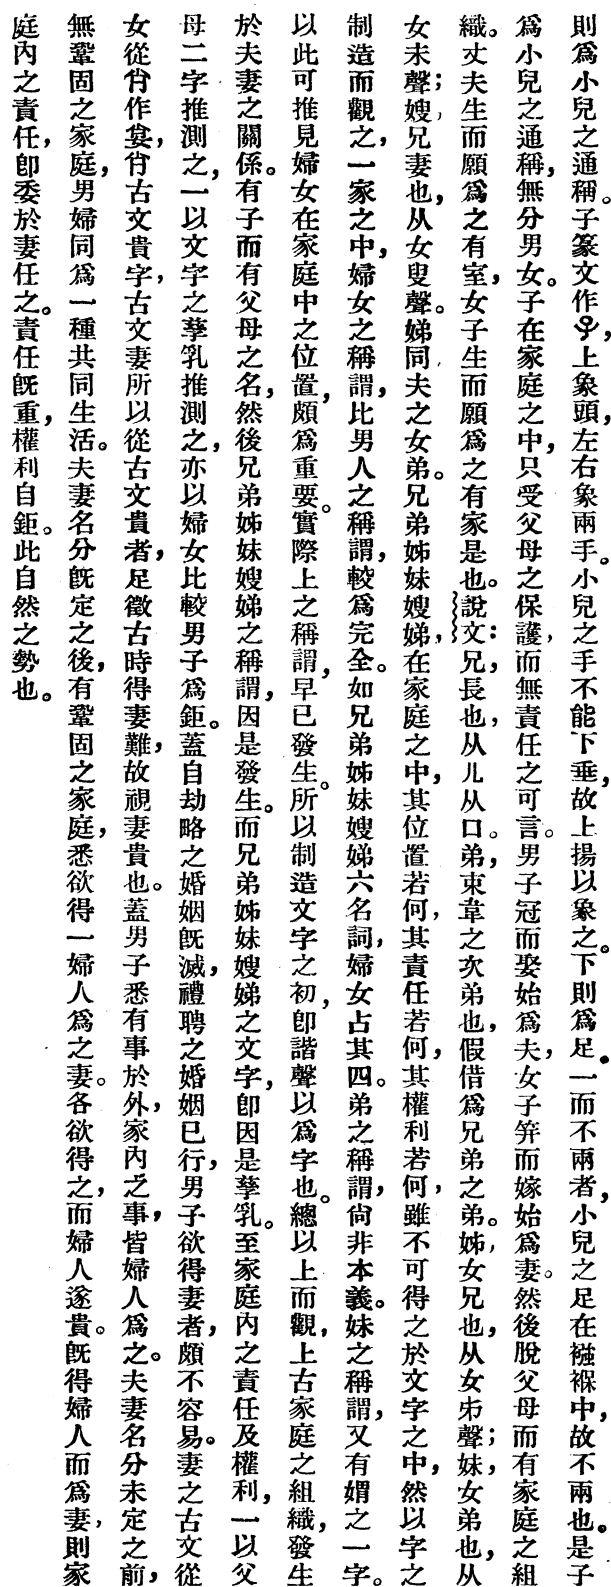 則爲小兒之通稱。子篆文作𢀇,上象頭,左右象兩手。小兒之手不能下垂,故上揚以象之。下則爲足。一而不兩者,小兒之足在襁褓中,故不兩也。是子
爲小兒之通稱,無分男女。子在家庭之中,只受父母之保護,而無責任之可言。男子冠而娶始爲夫,女子笄而嫁始爲妻。然後脫父母而有家庭之組
織。丈夫生而願爲之有室,女子生而願爲之有家是也。說文:兄,長也,从儿从口。弟,束韋之次弟也,假借爲兄弟之弟。姊,女兄也,从女𠂔聲;妹,女弟也,从
女未聲;嫂,兄妻也,从女叟聲。娣同夫之女弟。兄弟姊妹嫂娣,在家庭之中,其位置若何,其責任若何,其權利若何,雖不可得之於文字之中,然以字之
制造而觀之,一家之中,婦女之稱謂,比男人之稱謂,較爲完全。如兄弟姊妹嫂娣六名詞,婦女占其四。弟之稱謂,尙非本義。妹之稱謂,又有媦之一字。
以此可推見婦女在家庭中之位置,頗爲重要。實際上之稱謂,早已發生。所以制造文字之初,卽諧聲以爲字也。總以上而觀,上古家庭之組織,發生
於夫妻之關係。有子而有父母之名,然後兄弟姊妹嫂娣之稱謂,因是發生。而兄弟姊妹嫂娣之文字,卽因是孳乳。至家庭內之責任及權利,一以父
母二字推測之,一以文字之孳乳推測之,亦以婦女比較男子爲鉅。蓋自劫略之婚姻旣滅,禮聘之婚姻已行,男子欲得妻者,頗不容易。妻之古文從
女從𡴎作㚣,𡴎古文貴字,古文妻所以從古文貴者,足徵古時得妻難,故視妻貴也。蓋男子悉有事於外,家內之事,皆婦人爲之。夫妻名分未定之前,
無鞏固之家庭,男婦同爲一種共同生活。夫妻名分旣定之後,有鞏固之家庭,悉欲得一婦人爲之妻。各欲得之,而婦人遂貴。旣得婦人而爲妻,則家
庭內之責任,卽委於妻任之。責任旣重,權利自鉅。此自然之勢也。